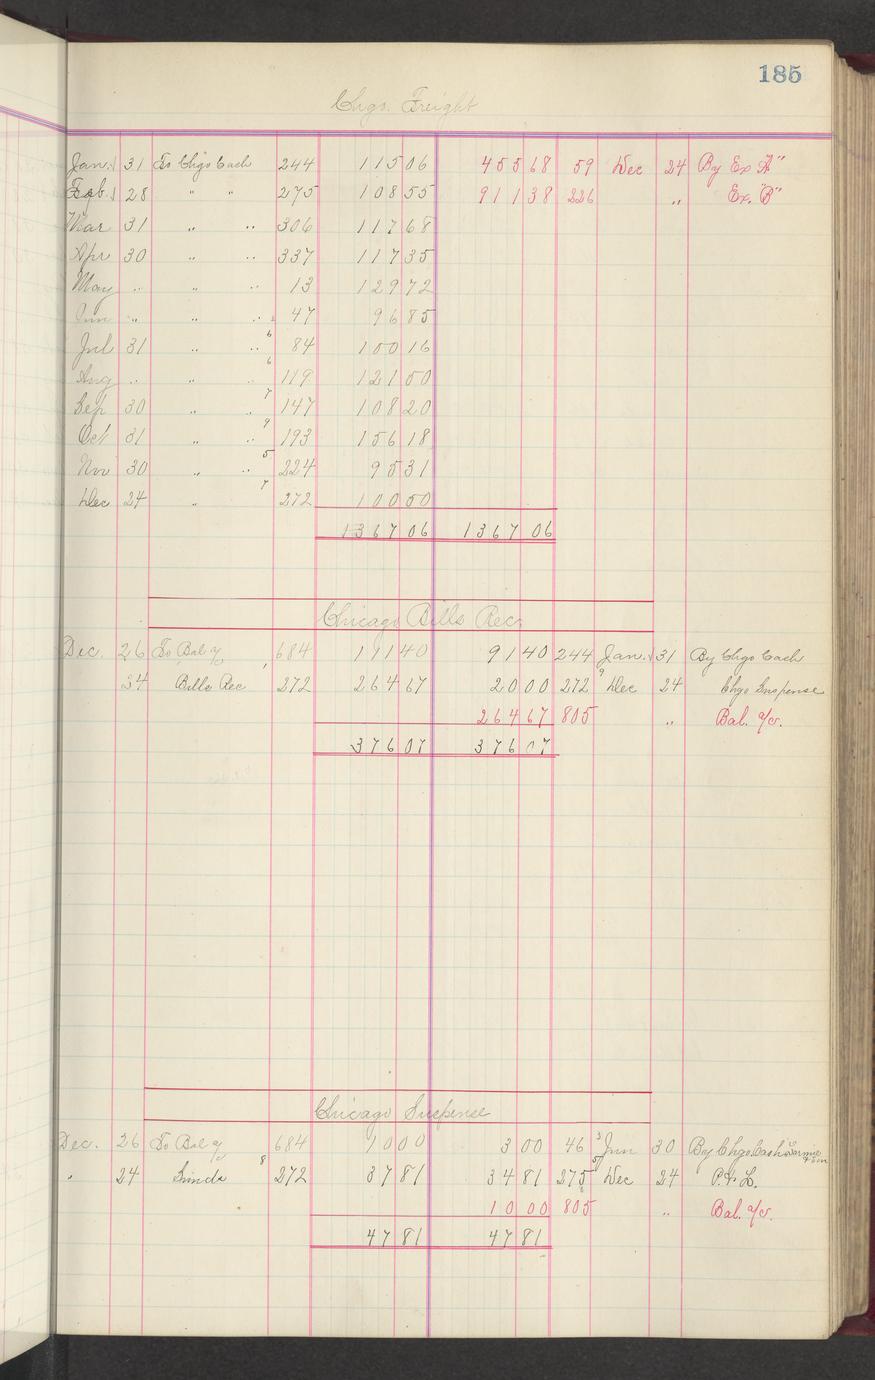 185
Chgo. Freight
Jan. 31 To Chgo Cash 244 115 06 455 68 59 Dec 24 By Ex "A"
Feb. 28 " " 275 108 55 911 38 226 " Ex. "B"
Mar 31 " " 306 117 68
Apr 30 " " 337 117 35
May " " " 13 129 72
Jun " " " 47 96 85
Jul 31 " " 6 84 100 16
Aug " " " 6 119 121 50
Sep 30 " " 7 147 108 20
Oct 31 " " 9 193 156 18
Nov 30 " " 5 224 95 31
Dec 24 " 7 272 100 50
1367 06 1367 06
Chicago Bills Rec.
Dec. 26 To Bal a/c 684 111 40 91 40 244 Jan. 31 By Chgo Cash
24 Bills Rec 272 264 67 20 00 272 9 Dec 24 Chgo Suspense
264 67 805 " Bal. a/c.
376 07 376 07
Chicago Suspense
Dec. 26 To Bal a/c 684 10 00 3 00 46 3 Jun 30 By Chgo Cash
" 24 Sunds 8 272 37 81 34 81 275 Dec 24 P. & L.
10 00 805 " Bal. a/c.
47 81 47 81